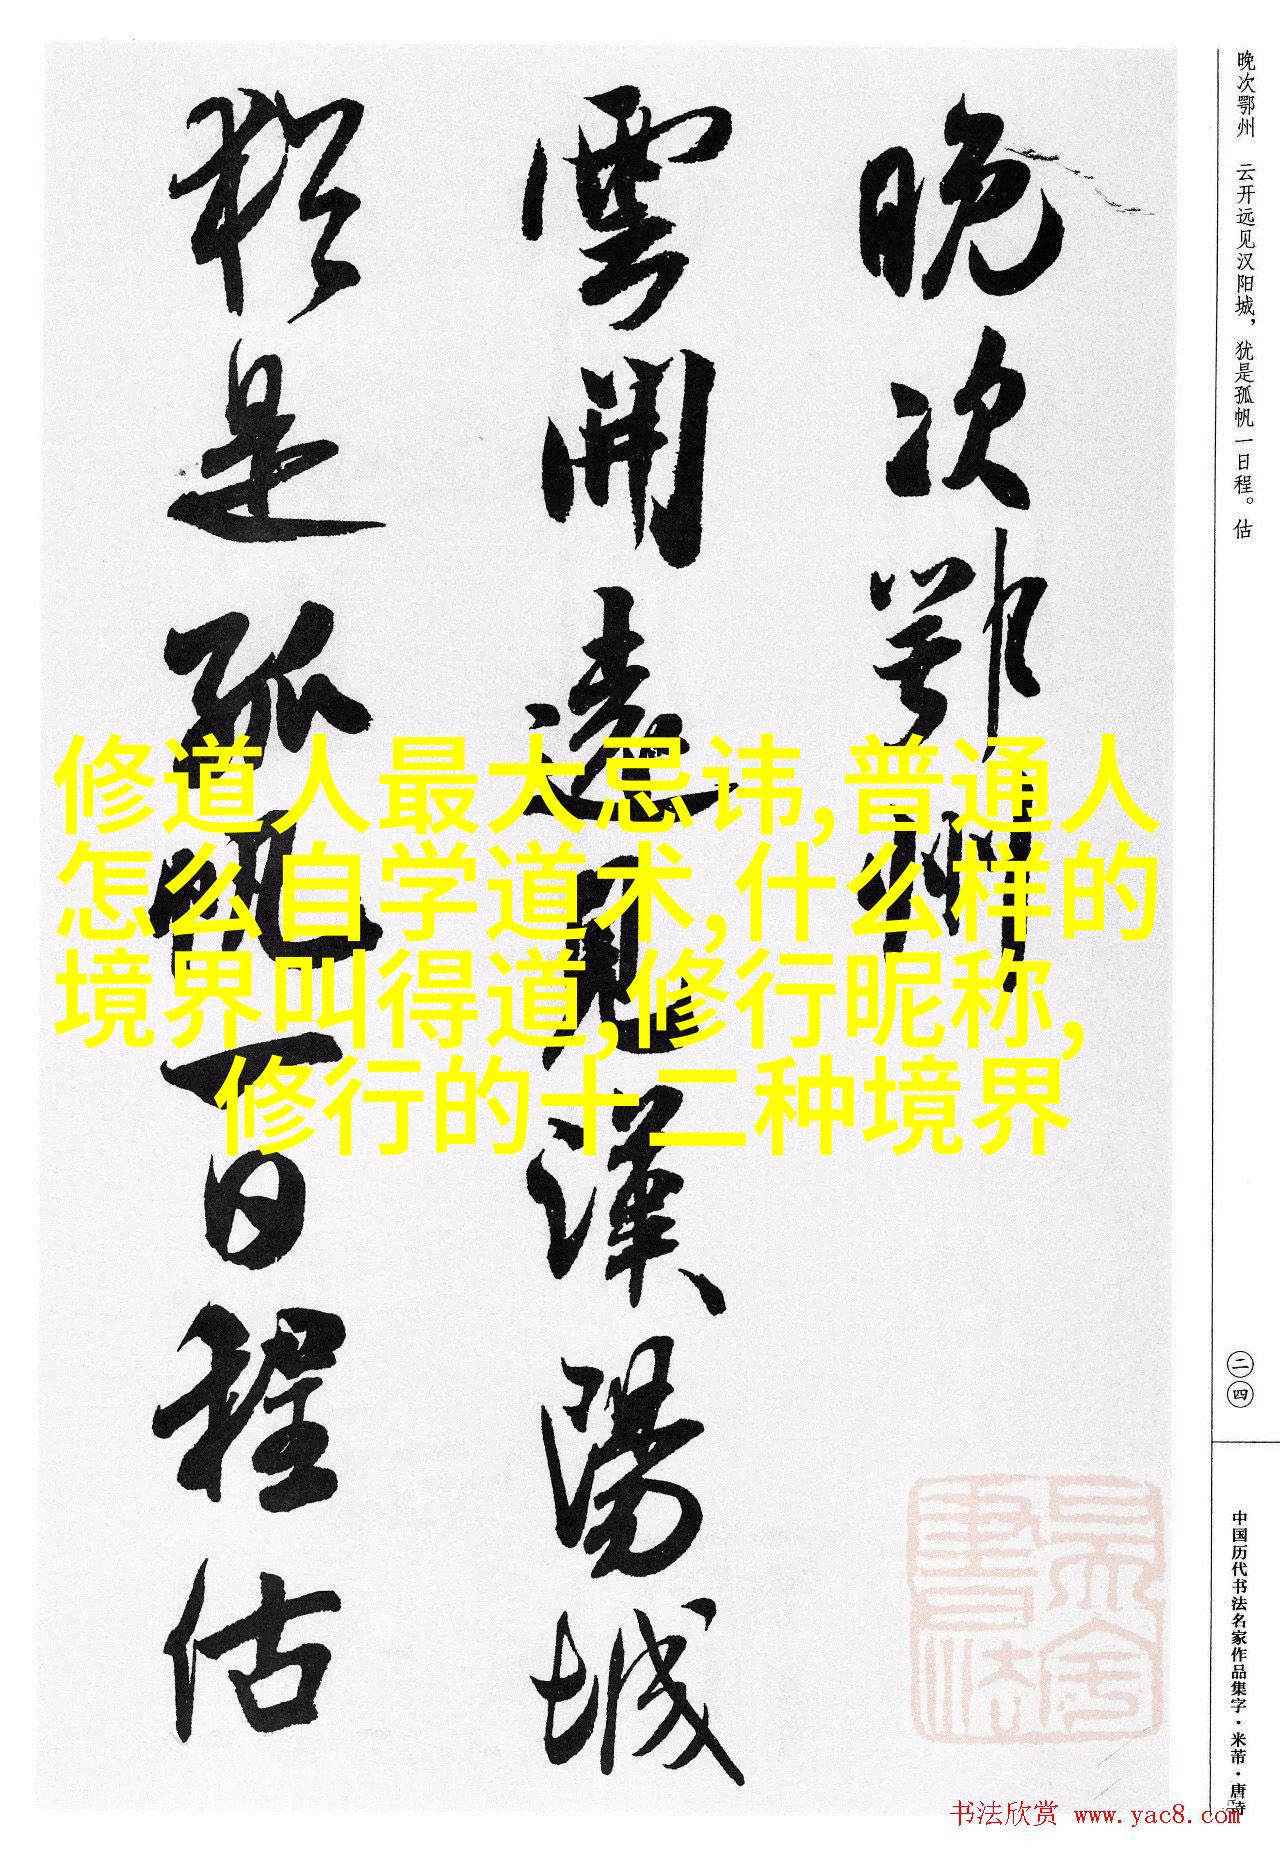 晚次鄂州
雲開遠見漢陽城
猶是孤帆一日程估
晚次鄂州 云开远见汉阳城，犹是孤帆一日程。估
二四
中国历代书法名家作品集字·米芾·唐诗
修道人最大忌讳,普通人
怎么自学道术,什么样的
境界叫得道,修行昵称,
修行的十二种境界
书法欣赏 www.yac8.com